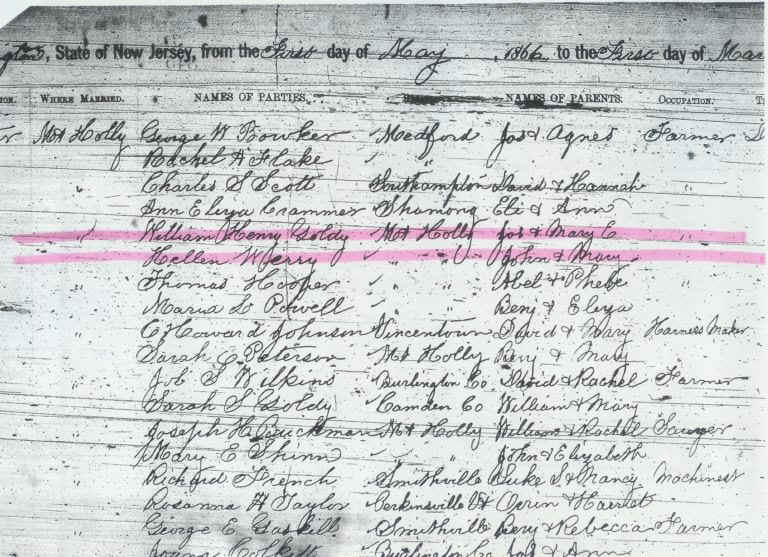 5, State of New Jersey, from the First day of May, 1866 to the First day of
WHERE MARRIED. NAMES OF PARTIES. NAMES OF PARENTS. OCCUPATION.
Mt Holly George W Bowker Medford Jos & Agnes Farmer
Rachel H Flake " "
Charles S Scott Southampton David & Hannah "
Ann Eliza Crammer Shamong Eli & Ann
" William Henry Goldy Mt Holly Jos & Mary C "
Hellen W " " John & Mary
" Thomas Hooper " " Abel & Phebe "
Maria L Powell " " Benj & Eliza
" C Howard Johnson Vincentown David & Mary Harness Maker
Sarah C Peterson Mt Holly Benj & Mary
" Job S Wilkins Burlington Co David & Rachel Farmer
Sarah S Goldy Camden Co William & Mary
" Joseph H Buckman Mt Holly William & Rachel Sawyer
Mary E Shinn " " John & Elizabeth
" Richard French Smithville Luke S & Nancy Machinest
Rosanna H Taylor Perkinsville Vt Orrin & Harriet
" George E Gaskill Smithville Benj & Rebecca Farmer
Burlington Co Jos & Ann